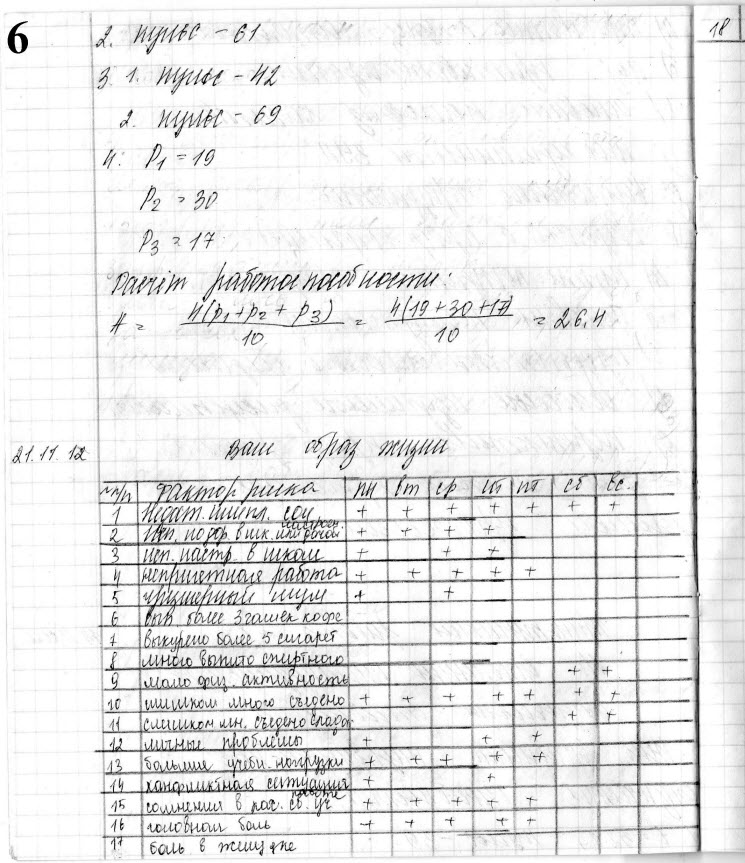 6
18
2. пульс – 61
3. 1. пульс – 42
2. пульс – 69
4: P₁ = 19
P₂ = 30
P₃ = 17
Расчёт работоспособности:
A = 4(p₁+p₂+p₃)/10 = 4(19+30+17)/10 = 26,4
21.11.12 Ваш образ жизни
п/п фактор риска пн вт ср чт пт сб вс.
1 недат. сон + + + + + + +
2 настроен. + + + +
3 исп. настр. в школе + + +
4 неприятная работа + + + + +
5 чрезмерный шум + +
6 вып. более 3 чашек кофе
7 выкурено более 5 сигарет
8 много выпито спиртного
9 мало физ. активность + +
10 слишком много съедено + + + + + + +
11 слишком мн. съедено сладк + +
12 личные проблемы + + +
13 большие учебн. нагрузки + + + + +
14 конфликтная ситуация + +
15 сомнения в рас. св. уч работе + + + + +
16 головная боль + + + + +
17 боль в желудке